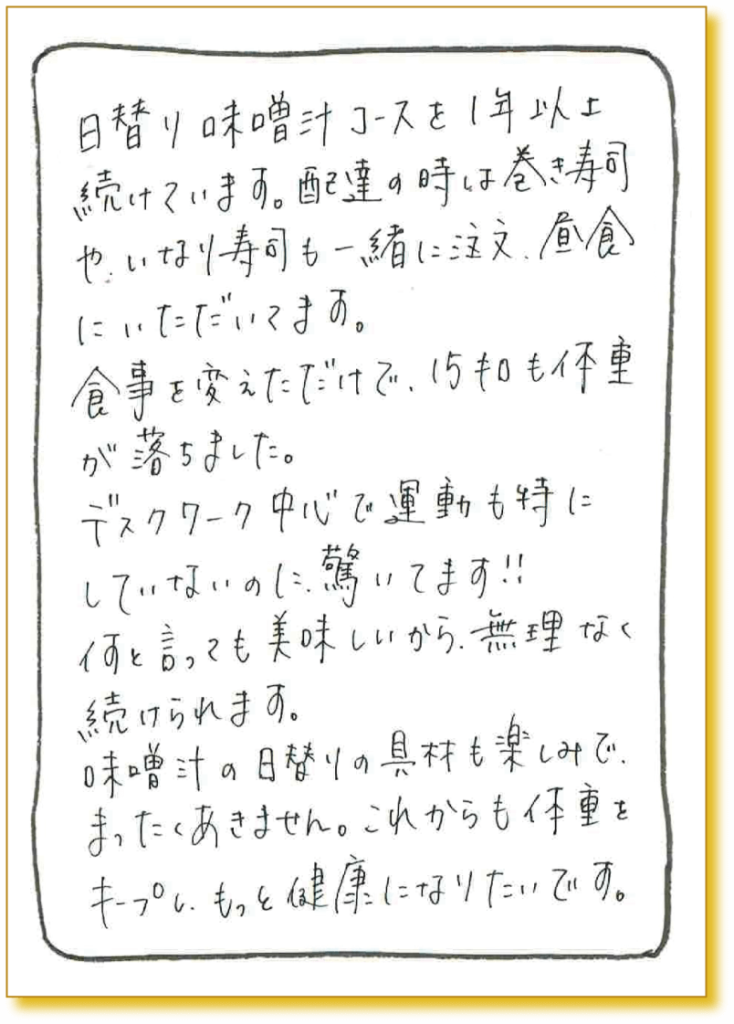 日替り味噌汁コースを1年以上
続けています。配達の時は巻き寿司
や、いなり寿司も一緒に注文、昼食
にいただいてます。
食事を変えただけで、15キロも体重
が落ちました。
デスクワーク中心で運動も特に
していないのに、驚いてます!!
何と言っても美味しいから、無理なく
続けられます。
味噌汁の日替りの具材も楽しみで、
まったくあきません。これからも体重を
キープし、もっと健康になりたいです。